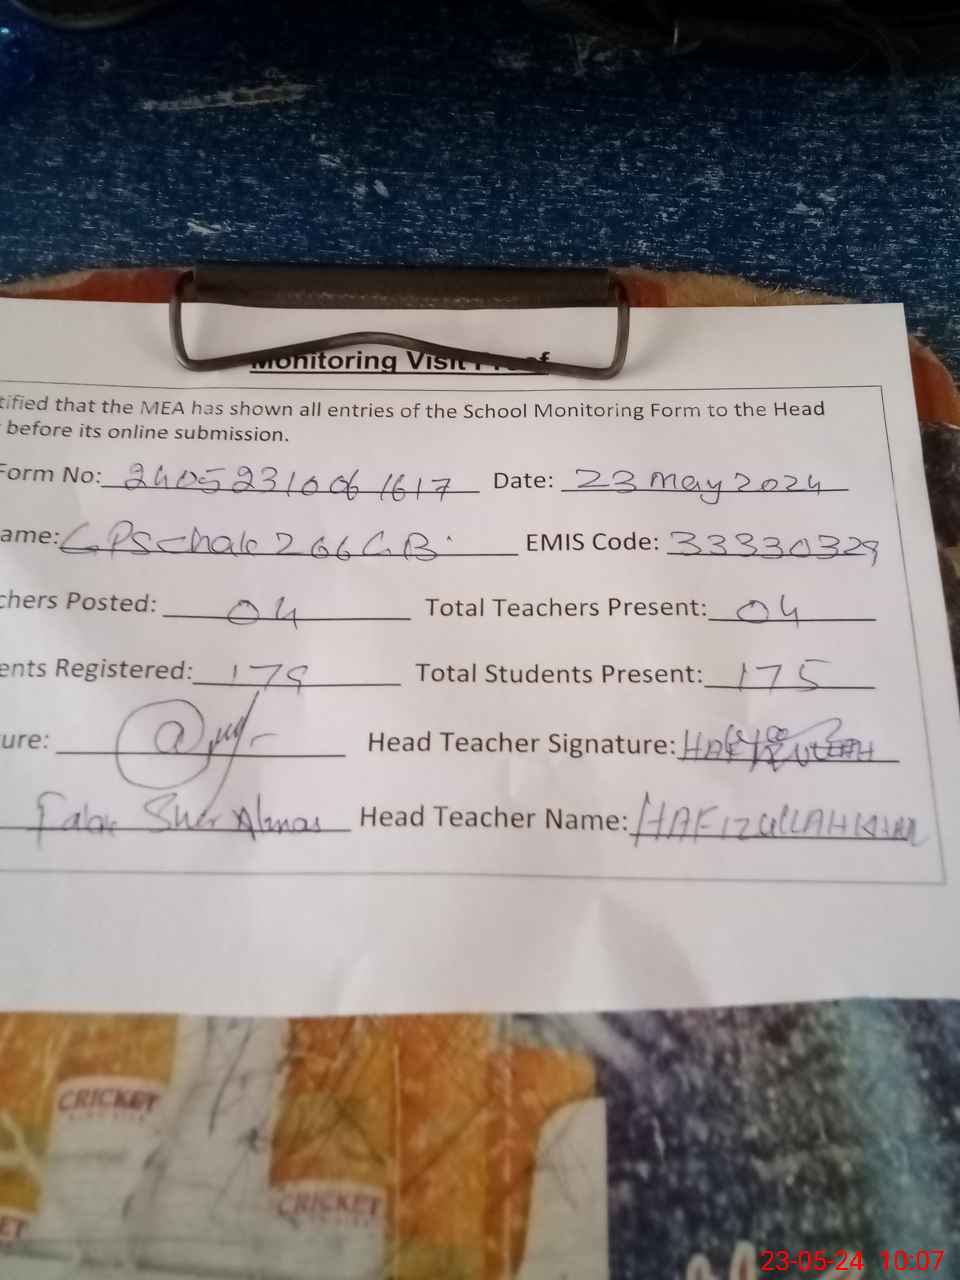 Monitoring Visit Proof
tified that the MEA has shown all entries of the School Monitoring Form to the Head
before its online submission.
Form No: 2405231006 1617 Date: 23 May 2024
ame: GPS chak 266 GB EMIS Code: 33330329
chers Posted: 04 Total Teachers Present: 04
ents Registered: 179 Total Students Present: 175
ure: Head Teacher Signature:
Falak Sher Head Teacher Name: HAFIZULLAH KHAN
CRICKET
CRICKET
ET
23-05-24 10:07